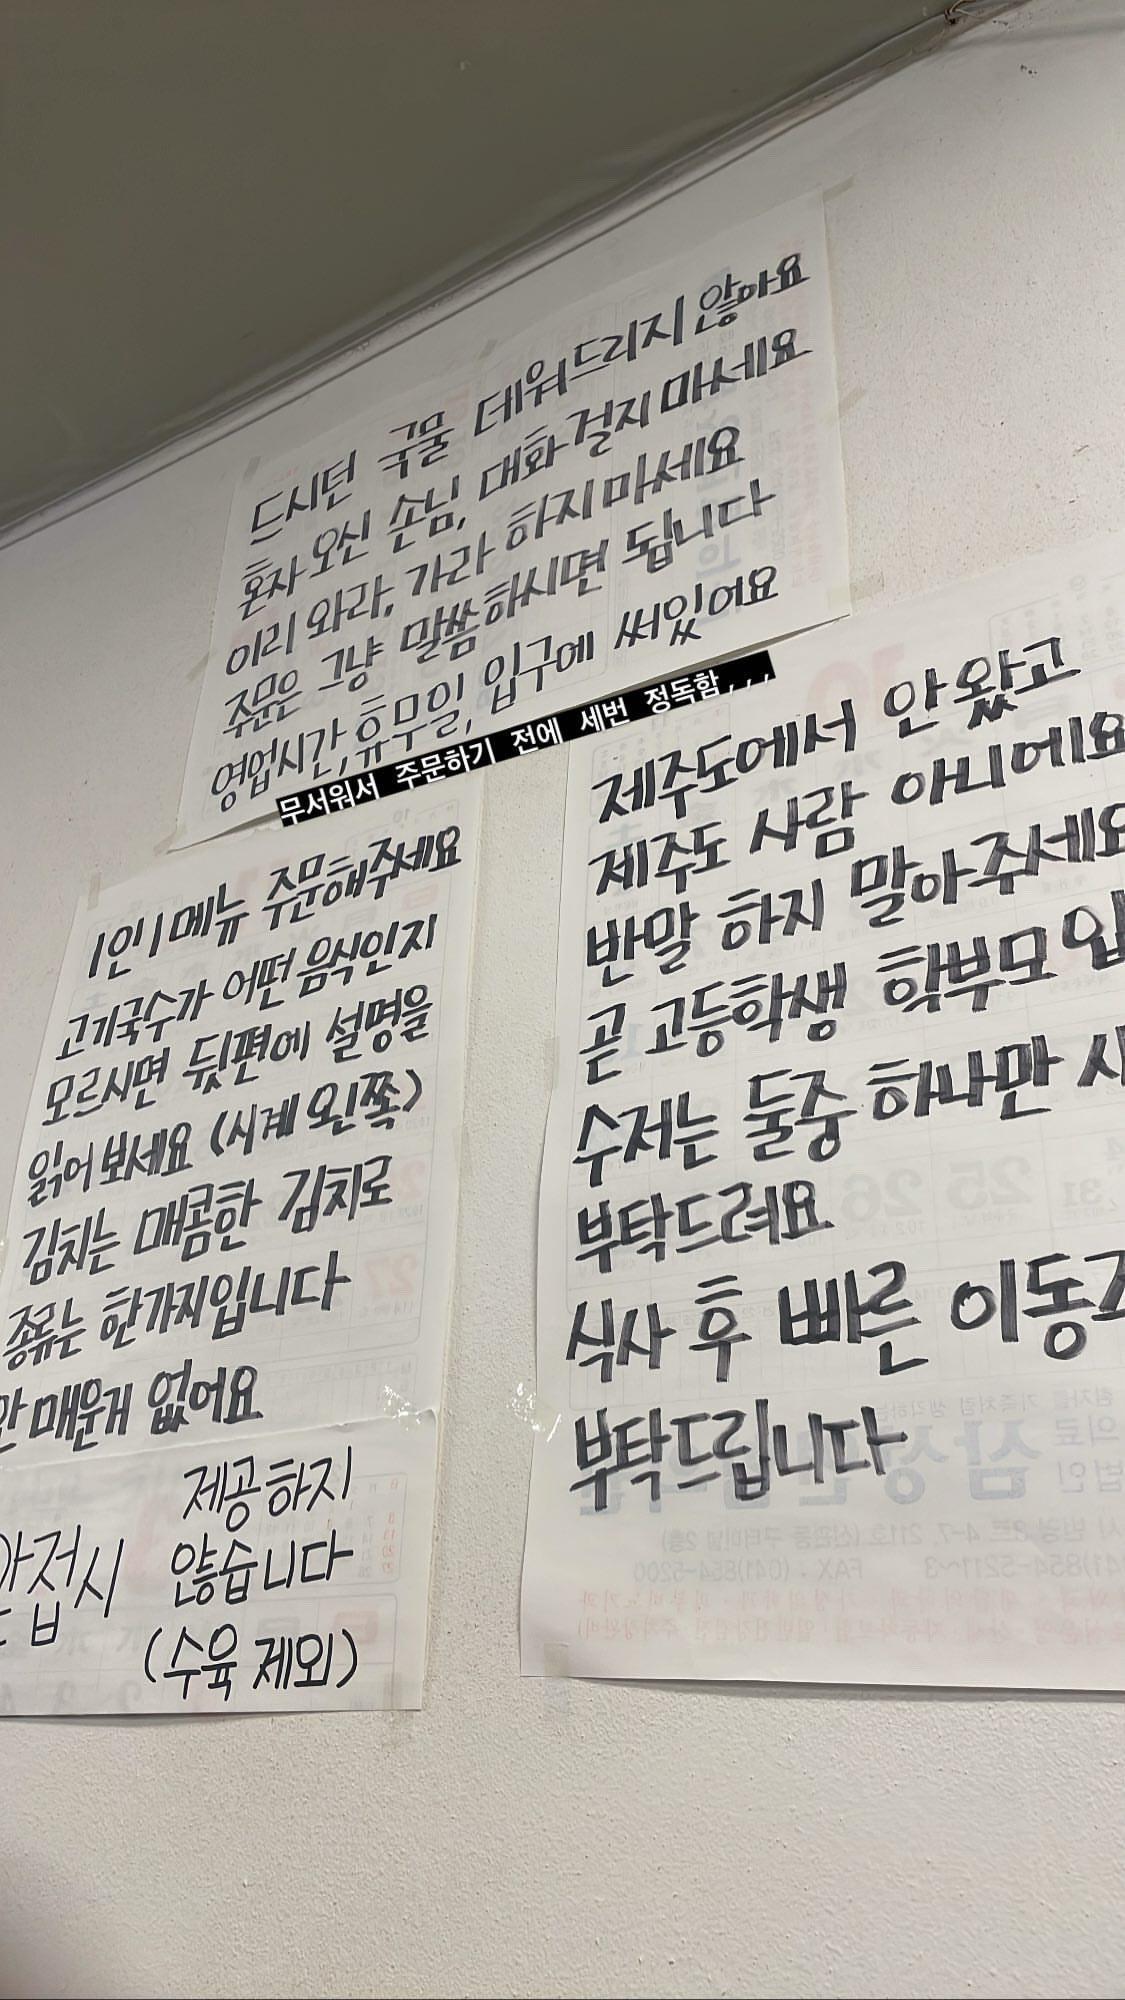 드시던 국물 데워드리지 않아요
혼자 오신 손님, 대화 걸지 마세요
이리 와라, 가라 하지마세요
주문은 그냥 말씀하시면 됩니다
영업시간, 휴무일, 입구에 써있어요
무서워서 주문하기 전에 세번 정독함,,,
1인 1메뉴 주문해주세요
고기국수가 어떤 음식인지
모르시면 뒷편에 설명을
읽어 보세요 (시계 왼쪽)
김치는 매콤한 김치로
종류는 한가지입니다
안매운게 없어요
제공하지
접시 않습니다
(수육 제외)
제주도에서 안왔고
제주도 사람 아니에요
반말 하지 말아주세요
곧 고등학생 학부모 입
수저는 둘중 하나만 사
부탁드려요
식사 후 빠른 이동
부탁드립니다
25 26
31
27
FAX : (041)854-5200